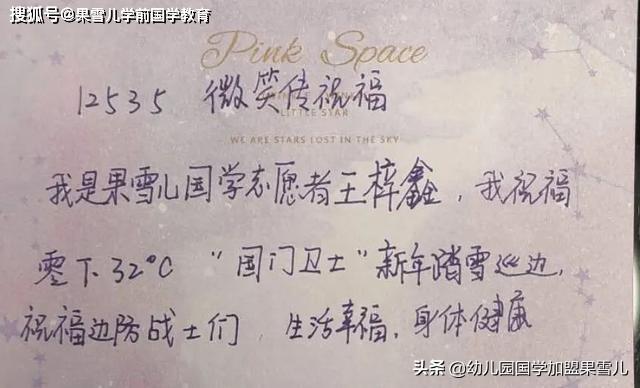 搜狐号@果雪儿学前国学教育
Pink Space
12535 微笑传祝福
LITTLE STAR
WE ARE STARS LOST IN THE SKY
我是果雪儿国学志愿者王梓鑫，我祝福
零下32°C “国门卫士”新年踏雪巡边，
祝福边防战士们，生活幸福，身体健康
头条@幼儿园国学加盟果雪儿